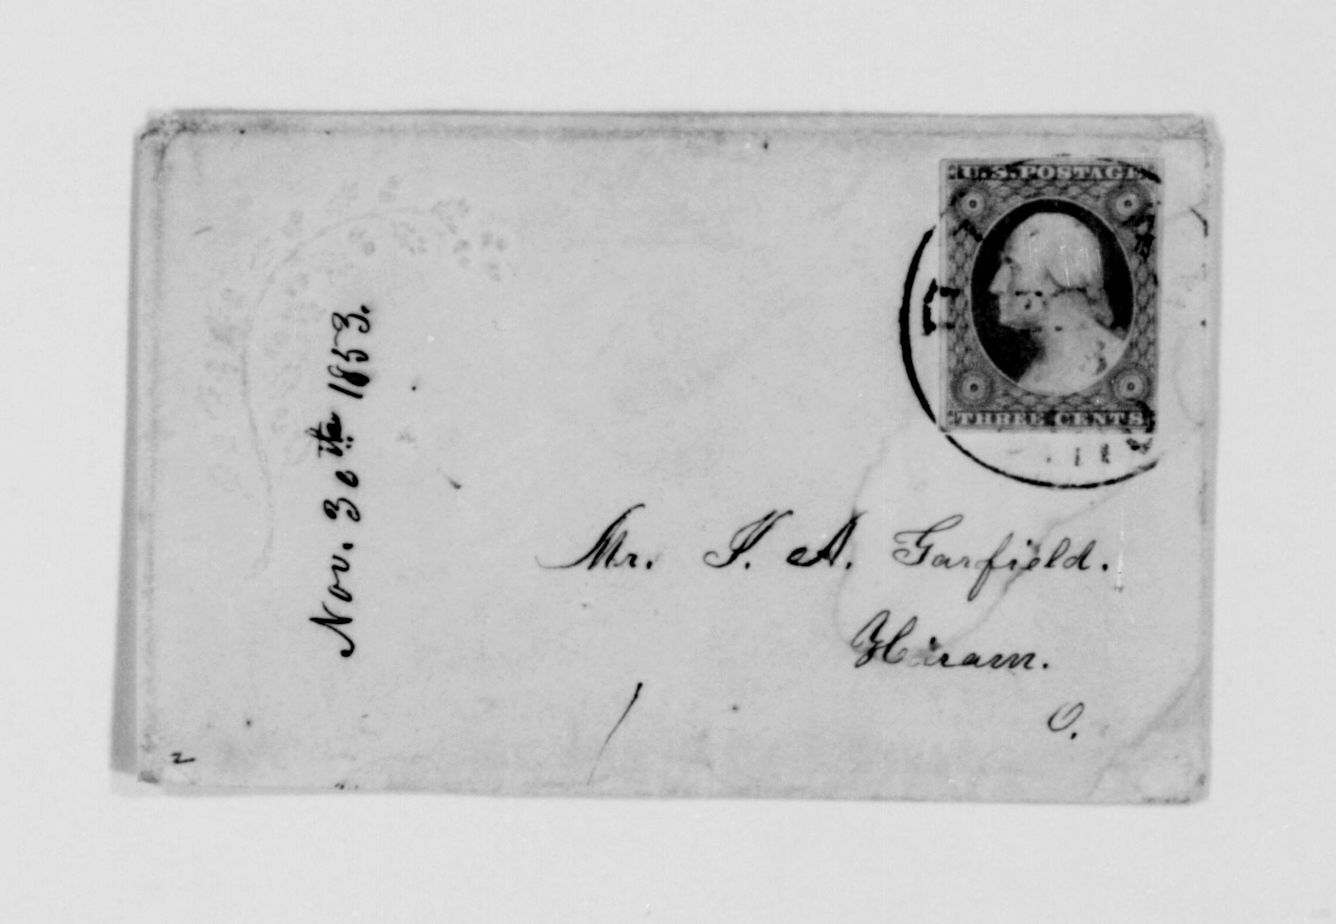 U.S. POSTAGE
THREE CENTS
Nov. 30th 1853.
Mr. J. A. Garfield.
Hiram.
O.
2